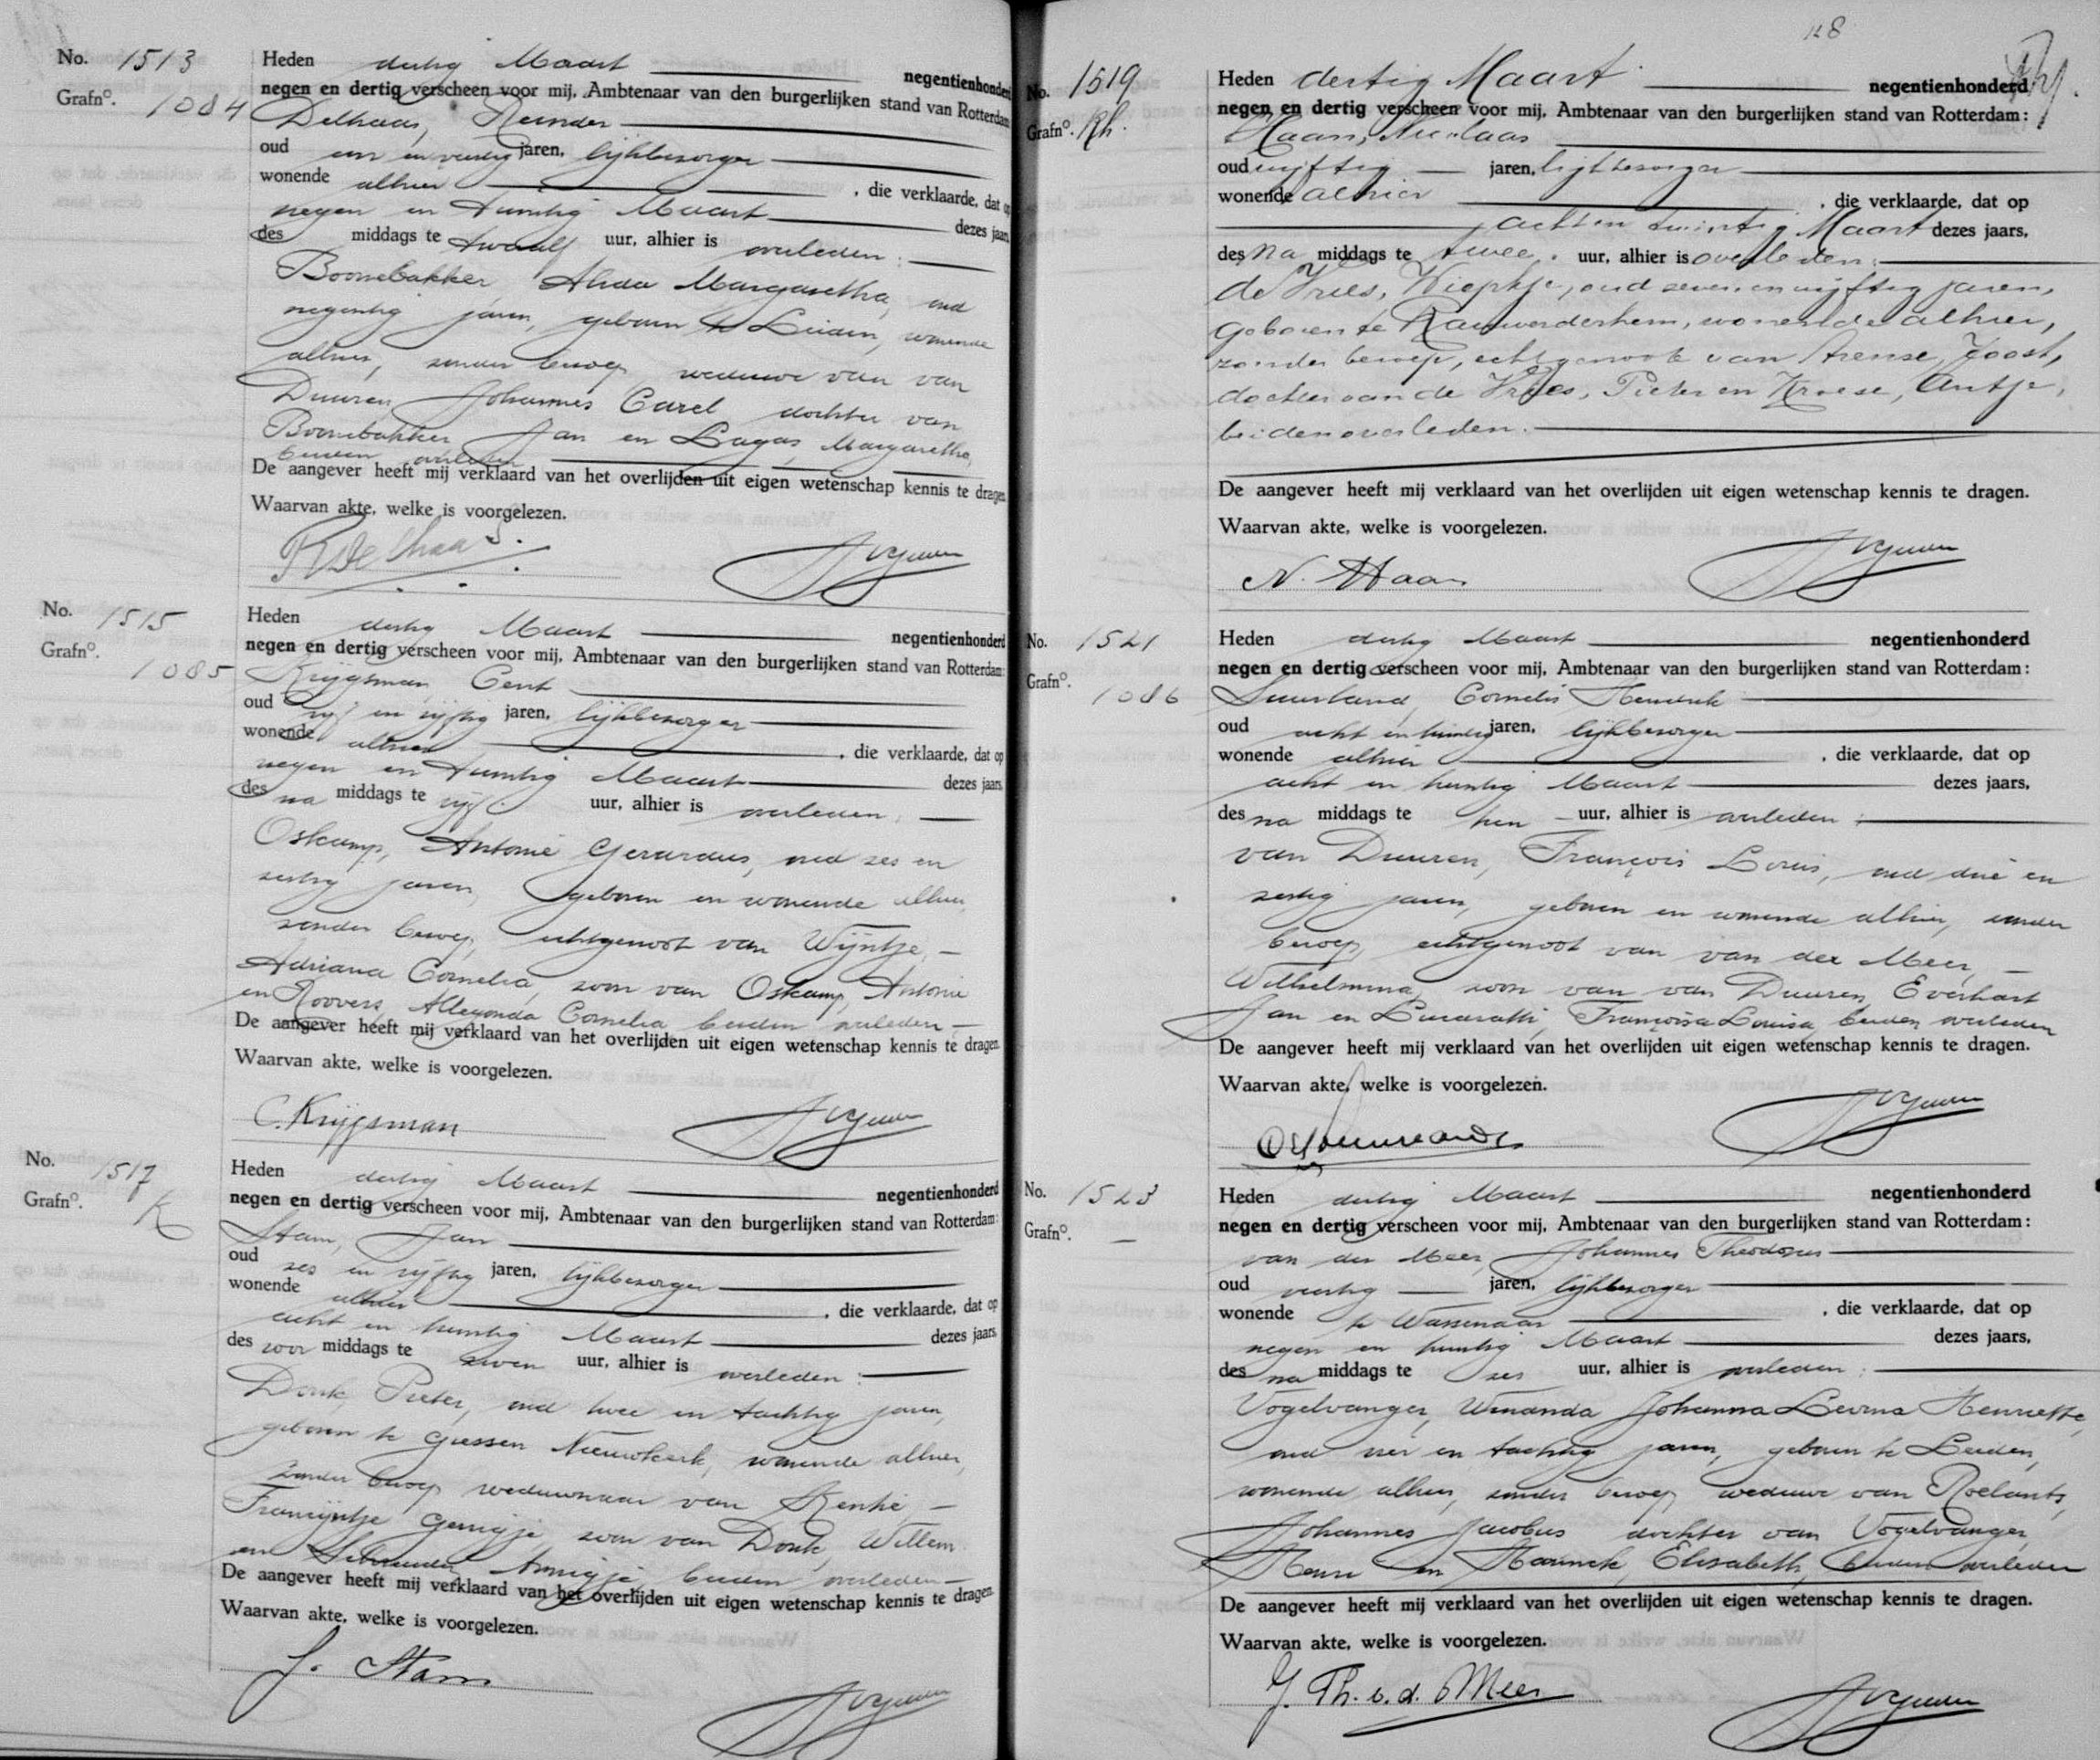 No. 1513
Grafno. 1084
Heden dertig Maart negentienhonderd
negen en dertig verscheen voor mij, Ambtenaar van den burgerlijken stand van Rotterdam
Delhaas, Reinder
oud een en veertig jaren, lijkbezorger
wonende alhier , die verklaarde, dat op
negen en twintig Maart dezes jaars
des middags te twaalf uur, alhier is overleden:
Boonebakker, Alida Margaretha, oud
negentig jaren, geboren te Leiden, wonende
alhier, zonder beroep, weduwe van van
Duuren, Johannes Carel, dochter van
Boonebakker, Jan en Lagas, Margaretha,
beiden overleden
De aangever heeft mij verklaard van het overlijden uit eigen wetenschap kennis te dragen.
Waarvan akte, welke is voorgelezen.
R Delhaas.
No. 1515
Grafno. 1085
Heden dertig Maart negentienhonderd
negen en dertig verscheen voor mij, Ambtenaar van den burgerlijken stand van Rotterdam:
Krijgsman, Cent
oud vijf en vijftig jaren, lijkbezorger
wonende alhier , die verklaarde, dat op
negen en twintig Maart dezes jaars,
des na middags te vijf uur, alhier is overleden:
Oskamp, Antonie Gerardus, oud zes en
zestig jaren, geboren en wonende alhier,
zonder beroep, echtgenoot van Wijntje,
Adriana Cornelia, zoon van Oskamp, Antonie
en Roovers, Allegonda Cornelia, beiden overleden
De aangever heeft mij verklaard van het overlijden uit eigen wetenschap kennis te dragen.
Waarvan akte, welke is voorgelezen.
C. Krijgsman
No. 1517
Grafno. K
Heden dertig Maart negentienhonderd
negen en dertig verscheen voor mij, Ambtenaar van den burgerlijken stand van Rotterdam:
Stam, Jan
oud zes en vijftig jaren, lijkbezorger
wonende alhier , die verklaarde, dat op
acht en twintig Maart dezes jaars,
des voor middags te zeven uur, alhier is overleden:
Donk, Pieter, oud twee en tachtig jaren,
geboren te Giessen Nieuwkerk, wonende alhier,
zonder beroep, weduwnaar van
Francijntje Gerrigje, zoon van Donk, Willem
en Annigje, beiden overleden
De aangever heeft mij verklaard van het overlijden uit eigen wetenschap kennis te dragen.
Waarvan akte, welke is voorgelezen.
J. Stam
128
No. 1519
Grafno. Rh.
Heden dertig Maart negentienhonderd
negen en dertig verscheen voor mij, Ambtenaar van den burgerlijken stand van Rotterdam:
Haan, Nicolaas
oud vijftig jaren, lijkbezorger
wonende alhier , die verklaarde, dat op
acht en twintig Maart dezes jaars,
des na middags te twee uur, alhier is overleden:
de Vries, Wiepkje, oud zeven en vijftig jaren,
geboren te Rauwerderhem, wonende alhier,
zonder beroep, echtgenoote van Arense, Joost,
dochter van de Vries, Pieter en Kroese, Antje,
beiden overleden.
De aangever heeft mij verklaard van het overlijden uit eigen wetenschap kennis te dragen.
Waarvan akte, welke is voorgelezen.
N. Haan
No. 1521
Grafno. 1086
Heden dertig Maart negentienhonderd
negen en dertig verscheen voor mij, Ambtenaar van den burgerlijken stand van Rotterdam:
Suurland, Cornelis Hendrik
oud acht en twintig jaren, lijkbezorger
wonende alhier , die verklaarde, dat op
acht en twintig Maart dezes jaars,
des na middags te tien uur, alhier is overleden:
van Duuren, François Louis, oud drie en
zestig jaren, geboren en wonende alhier, zonder
beroep, echtgenoot van van der Meer,
Wilhelmina, zoon van van Duuren, Everhart
Jan en Lucaratti, Françoisa Louisa, beiden overleden
De aangever heeft mij verklaard van het overlijden uit eigen wetenschap kennis te dragen.
Waarvan akte, welke is voorgelezen.
No. 1523
Grafno. —
Heden dertig Maart negentienhonderd
negen en dertig verscheen voor mij, Ambtenaar van den burgerlijken stand van Rotterdam:
van der Meer, Johannes Theodorus
oud veertig jaren, lijkbezorger
wonende te Wassenaar , die verklaarde, dat op
negen en twintig Maart dezes jaars,
des na middags te zes uur, alhier is overleden:
Vogelvanger, Winanda Johanna Levina Henriette,
oud vier en tachtig jaren, geboren te Leiden,
wonende alhier, zonder beroep, weduwe van Roelants,
Johannes Jacobus, dochter van Vogelvanger,
Henri en Harinck, Elisabeth, beiden overleden
De aangever heeft mij verklaard van het overlijden uit eigen wetenschap kennis te dragen.
Waarvan akte, welke is voorgelezen.
J. Th. v. d. Meer